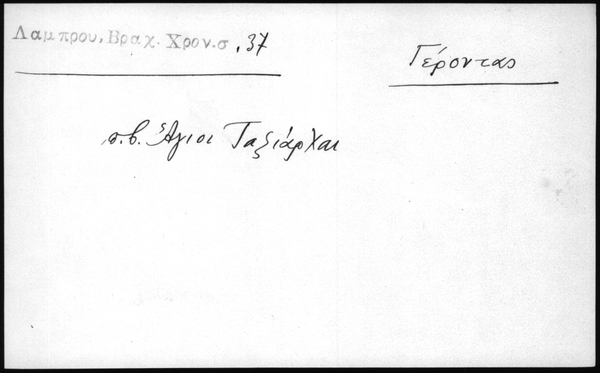 Λαμπρου, Βραχ. Χρον. σ. 37
Γέροντας
π.β. Ἅγιοι Ταξιάρχαι